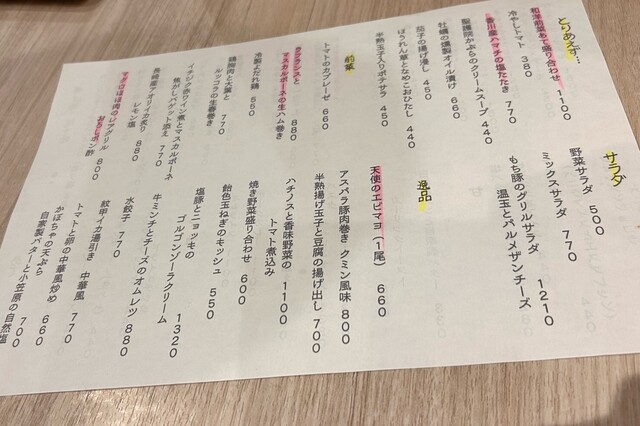 とりあえず…
和洋前菜あて盛り合わせ 1100
冷やしトマト 380
香川産ハマチの塩たたき 770
聖護院かぶらのクリームスープ 440
牡蠣の燻製オイル漬け 660
茄子の揚げ浸し 450
ほうれん草となめこおひたし 440
半熟玉子入りポテサラ 450
前菜
トマトのカプレーゼ 660
マスカルポーネの生ハム巻き 880
冷製よだれ鶏 550
鶏胸肉と大葉と
ルッコラの生春巻き 770
イチジク赤ワイン煮とマスカルポーネ
焦がしバゲット添え 770
長崎産アオリイカ炙り
レモン塩 880
マグロほほ肉のレアグリル
おろしポン酢 800
サラダ
野菜サラダ 500
ミックスサラダ 770
もち豚のグリルサラダ
温玉とパルメザンチーズ 1210
逸品
天使のエビマヨ(1尾) 660
アスパラ豚肉巻き クミン風味 800
半熟揚げ玉子と豆腐の揚げ出し 700
ハチノスと香味野菜の
トマト煮込み 1100
焼き野菜盛り合わせ 600
飴色玉ねぎのキッシュ 550
塩豚とニョッキの
ゴルゴンゾーラクリーム 1320
牛ミンチとチーズのオムレツ 880
水餃子 770
紋甲イカ湯引き 中華風 770
トマトと卵の中華風炒め 660
かぼちゃの天ぷら
自家製バターと小笠原の自然塩 700